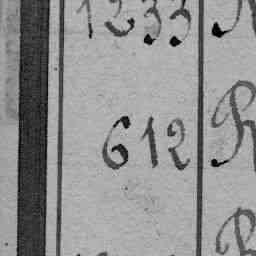 1233 R
612 R
R